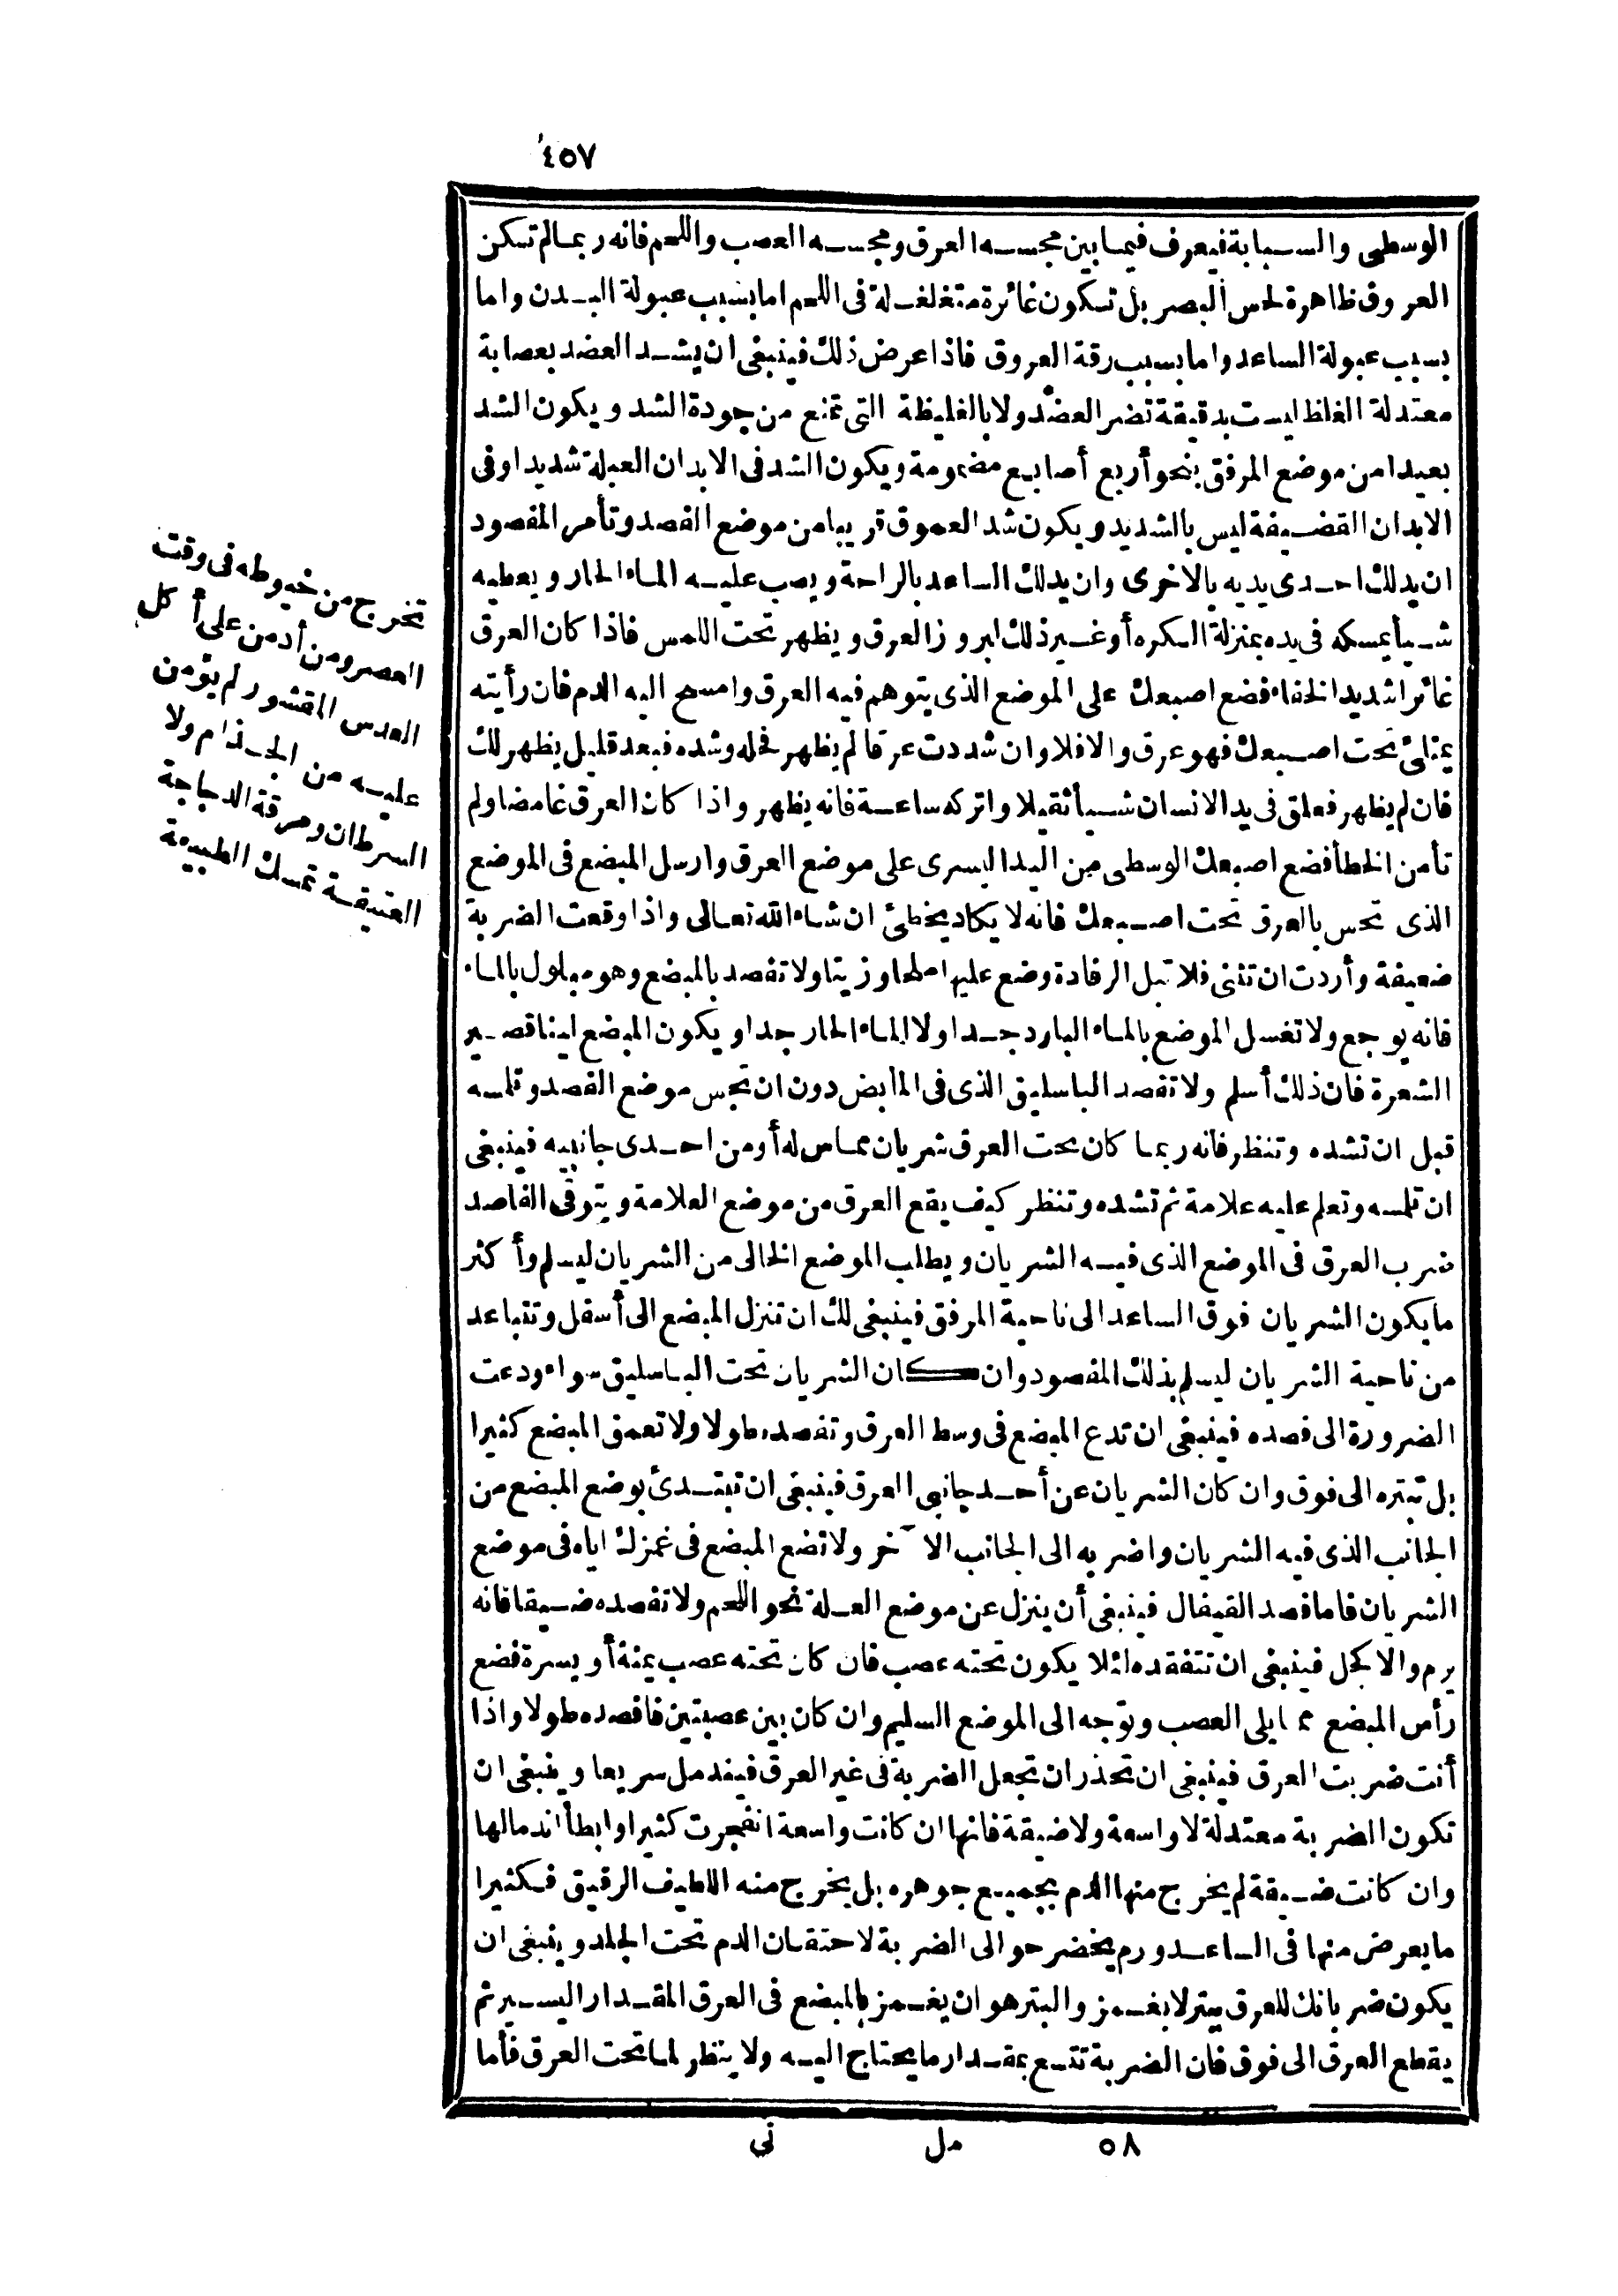 ٤٥٧
الوسطى والسبابة فيعرف فيما بين مجسه العرق ومجسه العصب واللحم فانه ربما لم تكن
العروق ظاهرة لحس البصر بل تكون غائرة متغلغلة فى اللحم اما بسبب عبولة البدن واما
بسبب عبولة الساعد واما بسبب رقة العروق فاذا عرض ذلك فينبغى ان يشد العضد بعصابة
معتدلة الغلظ ليست بدقيقة تضر العضد ولا بالغليظة التى تمنع من جودة الشد ويكون الشد
بعيدا من موضع المرفق بنحو أربع أصابع مضمومة ويكون الشد فى الابدان العبلة شديدا وفى
الابدان القضيفة ليس بالشديد ويكون شد العموق قريبا من موضع الفصد وتأمر المفصود
ان يدلك احدى يديه بالاخرى وان يدلك الساعد بالراحة ويصب عليه الماء الحار ويعطيه
شيأ يمسكه فى يده بمنزلة السكره أو غير ذلك ابروز العرق ويظهر تحت اللمس فاذا كان العرق
غائرا شديد الخفاء فضع اصبعك على الموضع الذى يتوهم فيه العرق وامسح اليه الدم فان رأيته
يمتلئ تحت اصبعك فهو عرق والافلا وان شددت عرقا لم يظهر فحله وشده فبعد قليل يظهر لك
فان لم يظهر فعلق فى يد الانسان شيأ ثقيلا واتركه ساعة فانه يظهر واذا كان العرق غامضا ولم
تأمن الخطأ فضع اصبعك الوسطى من اليد اليسرى على موضع العرق وارسل المبضع فى الموضع
الذى تحس بالعرق تحت اصبعك فانه لا يكاد يخطئ ان شاء الله تعالى واذا وقعت الضربة
ضعيفة وأردت ان تثنى فلا تبل الرفادة وضع عليها ملحا وزيتا ولا تفصد بالمبضع وهو مبلول بالماء
فانه يوجع ولا تغسل الموضع بالماء البارد جدا ولا الماء الحار جدا ويكون المبضع لينا قصير
الشعرة فان ذلك أسلم ولا تفصد الباسليق الذى فى المأبض دون ان تجس موضع الفصد وتلمسه
قبل ان تشده وتنظر فانه ربما كان تحت العرق شريان مماس له أو من احدى جانبيه فينبغى
ان تلمسه وتعلم عليه علامة ثم تشده وتنظر كيف يقع العرق من موضع العلامة ويتوقى الفاصد
ضرب العرق فى الموضع الذى فيه الشريان ويطلب الموضع الخالى من الشريان ليسلم وأكثر
ما يكون الشريان فوق الساعد الى ناحية المرفق فينبغى لك ان تنزل المبضع الى أسفل وتتباعد
من ناحية الشريان ليسلم بذلك المفصود وان كان الشريان تحت الباسليق سواء ودعت
الضرورة الى فصده فينبغى ان تدع المبضع فى وسط العرق وتفصده طولا ولا تعمق المبضع كثيرا
بل تبتره الى فوق وان كان الشريان عن أحد جانبى العرق فينبغى ان تبتدئ بوضع المبضع من
الجانب الذى فيه الشريان واضربه الى الجانب الآخر ولا تضع المبضع فى غمزك اياه فى موضع
الشريان فاما فصد القيفال فينبغى أن ينزل عن موضع العلة نحو اللحم ولا تفصده ضيقا فانه
يرم والاكحل فينبغى ان تتفقده لئلا يكون تحته عصب فان كان تحته عصب يمنة أو يسرة فضع
رأس المبضع مما يلى العصب وتوجه الى الموضع السليم وان كان بين عصبتين فافصده طولا واذا
أنت ضربت العرق فينبغى ان تحذر ان تجعل الضربة فى غير العرق فيندمل سريعا وينبغى ان
تكون الضربة معتدلة لا واسعة ولا ضيقة فانها ان كانت واسعة انفجرت كثيرا وابطأ اندمالها
وان كانت ضيقة لم يخرج منها الدم بجميع جوهره بل يخرج منه اللطيف الرقيق فكثيرا
ما يعرض منها فى الساعد ورم يخضر حوالى الضربة لاحتقان الدم تحت الجلد وينبغى ان
يكون ضربانك للعرق ببتر لا بغمز والبتر هو ان يغمز بالمبضع فى العرق المقدار اليسير ثم
يقطع العرق الى فوق فان الضربة تتسع بمقدار ما يحتاج اليه ولا ينظر لما تحت العرق فأما
تخرج من خيوطه فى وقت
العصر ومن أدمن على أكل
العدس المقشور لم يؤمن
عليه من الجذام ولا
السرطان ومرقة الدجاجة
العتيقة تمسك الطبيعة
٥٨ مل نى